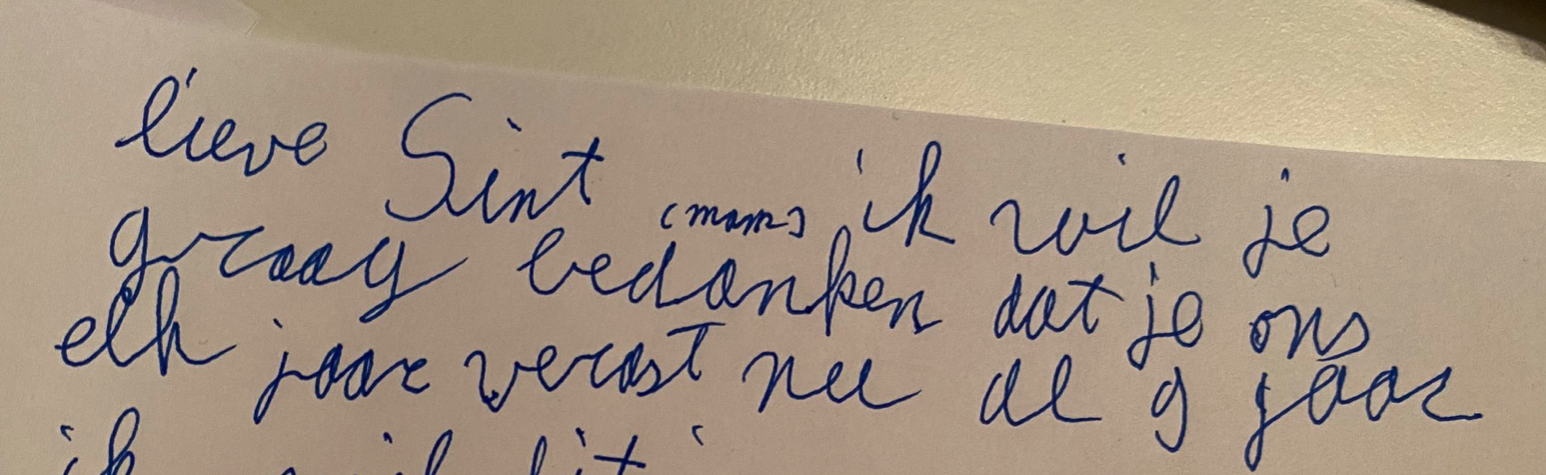 lieve Sint (mam) ik wil je
graag bedanken dat je ons
elk jaar verast nu al 9 jaar
ik